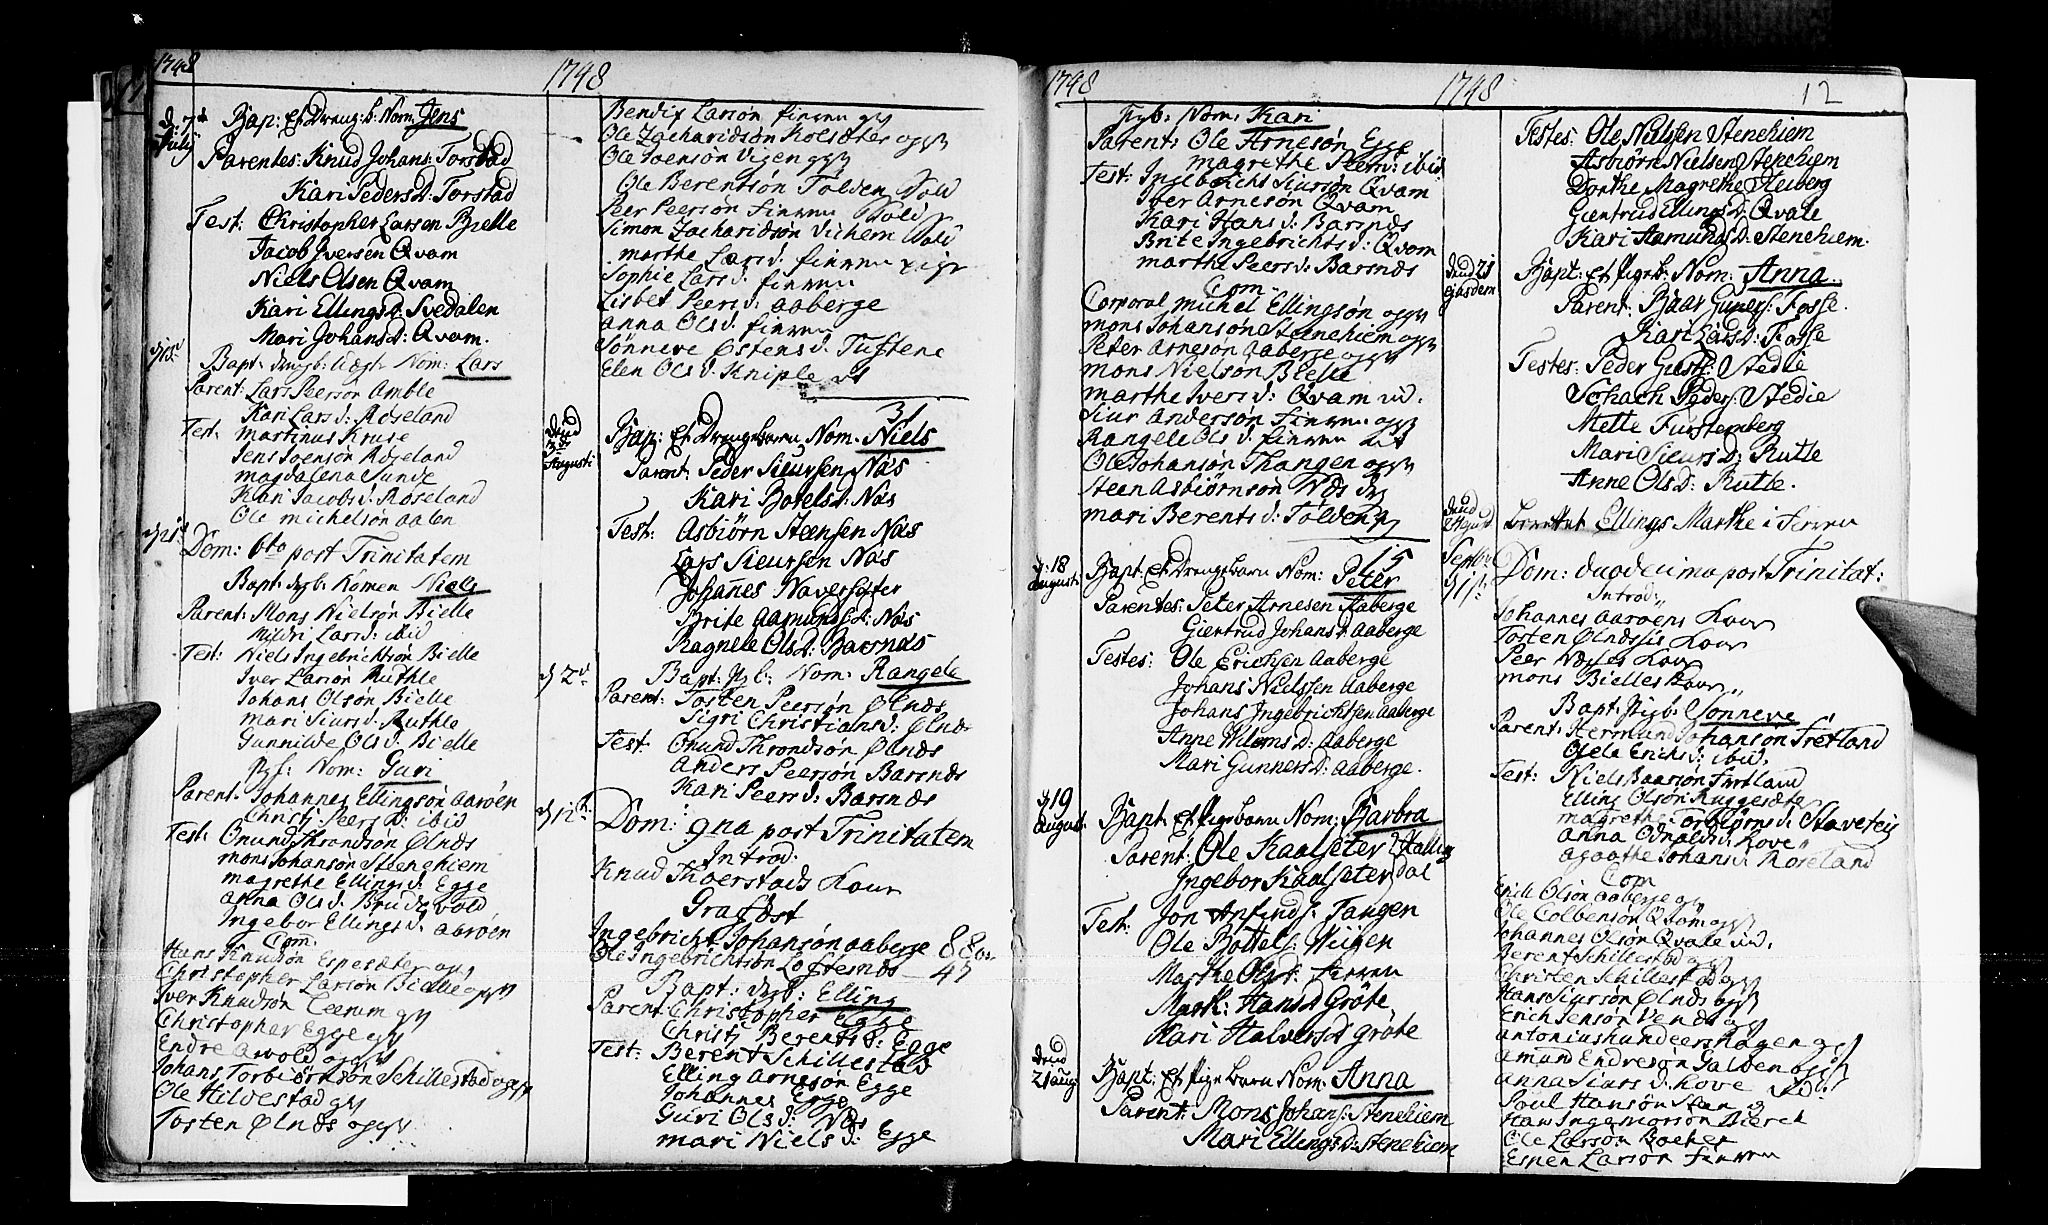 1748
1748
d: 7de July
Bap: Et Dreng: b: Nom: Jens
Parentes: Knud Johans: Torstad
Kari Peders D: Torstad
Test: Christopher Larsen Bielle
Jacob Iversen Qvam
Niels Olsen Qvam
Kari Ellings D: Svedalen
Mari Johans D: Qvam.
Bapt: drengb: Nom: Lars
Parent: Lars Peersøn Amble
Kari Lars d: Røseland
Test: Martinus Kruse
Jens Joensøn Røseland
Magdalena Sunde
Kari Jacobs d: Røseland
Ole Michelsøn Aalen
d 21
Dom: 6ta post Trinitatem
Bapt: dgb: Nomen Niels
Parent: Mons Nielsøn Bielle
Mildri Lars d: ibid
Test: Niels Ingebrichtsøn Bielle
Iver Larsøn Ruthle
Johans Olsøn Bielle
Mari Siurs d: Ruthle
Gunnilde Ols d: Bielle
Pgb: Nom: Guri
Parent: Johannes Ellingsøn Aarøen
Christj Peers D: ibid
Test: Onund Throndsøn Ølnæs
Mons Johansøn Steenehiem
Magrethe Ellings d: Egge
Anna Ols d: Brudevold
Ingebor Ellings d: Aarøen
Com:
Hans Knudsøn Espesæter
Christopher Larsøn Bielle
Iver Knudsøn
Christopher Egge
Endre Arvold
Johans Torbiörnsøn Schillestad
Ole Hildestad
Tosten Ølnæs
Bendix Larsøn finren
Ole Zacharidsøn Kolsæter
Ole Joensøn Vigen
Ole Berentsøn Tolden Sold
Peer Peersøn finren Sold
Simon Zacharidsøn Vichem Sold
Marthe Lars d: finren pige
Sophie Lars d: finren
Lisbet Peers d: Aaberge
Anna Ols d: finren
Sønneve Østens d: Tustene
Elen Ols d: Kniple
31
dend Augusti
Bap: Et Drengebarn Nom: Niels
Parent: Peder Sieursen Nås
Kari Botels D: Nås
Test: Asbiörn Steensen Nås
Lars Sieursen Nås
Johañes Naversæter
Brite Aamunds D: Nås
Ragnele Ols D: Barsnås
d 2d
Bapt: Pgb: Nom: Rangele
Parent: Tosten Peersøn Ølnæs
Sigri Christians d: Ølnæs
Test: Onund Throndsøn Ølnæs
Anders Peersøn Barsnæs
Kari Peers d: Barsnæs
d 12
Dom: 9na post Trinitatem
Introd:
Knud Thoerstads Kone
Grafæst
Ingebricht Johansøn Aaberge 88
Ole Ingebrichtsøn Loftesnæs 47
Bapt: dgb: Elling
Parent: Christopher Egge
Christj Berents d: Egge
Test: Berent Schillestad
Elling Arnesøn Egge
Johannes Egge
Guri Ols d: Næs
Mari Niels d: Egge
1748
1748
12
Pigb: Nom: Kari
Parent: Ole Arnesøn Egge
Magrethe Peers d: ibid
Test: Ingebricht Siursøn Qvam
Iver Arnesøn Qvam
Kari Hans d: Barsnæs
Brite Ingebrichts d: Qvam
Marthe Peers d: Barsnæs
Com:
Corporal Michel Ellingsøn
Mons Johansøn Steenehiem
Peter Arnesøn Aaberge
Mons Nielsøn Bielle
Marthe Ivers d: Qvam
Siur Andersøn finren
Rangele Ols d: finren
Ole Johansøn Thangen
Steen Asbiörnsøn Næs
Mari Berents d: Tolden
15
d: 18 Augusti
Bapt: Et Drengebarn Nom: Peter
Parentes: Peter Arnesen Aaberge
Giertrud Johans D: Aaberge
Testes: Ole Erichsen Aaberge
Johans Nielssen Aaberge
Johans Ingebrichtsen Aaberge
Anne Willoms D: Aaberge
Mari Gunners D: Aaberge.
d 19 August.
Bapt: Et Pigebarn Nom: Barbra
Parent: Ole Kaalsæter Halling
Ingebor Kaalsæter dal
Test: Jon Anfind s: Tangen
Ole Bottels: Wiigen
Marthe Ols d: finren
Marth: Hans d Grøte
Kari Halvers d: Grøte
dend 21 Aug:
Bapt: Et Pigebarn Nom: Anna
Parent: Mons Johans: Stenehiem
Mari Ellings D: Stenehiem
Testes: Ole Nielsen Stenehiem
Asbiörn Nielsen Stenehiem
Dorthe Magrethe Heiberg
Giertrud Ellings D: Qvale
Kari Aamunds D: Stenehiem.
dend 21 ejusdem
Bapt: Et Pigeb: Nom: Anna
Parent: Baar Guners: Fosse.
Kari Lars D: Fosse
Testes: Peder Giests: Stedie
Johach Peders: Stedie
Mette Fürstemberg
Mari Sieurs D: Rutle
Anne Ols D: Rutle.
dend August
Ellings Marthe i Finren
Septbr: d 1st:
Dom: duodecima post Trinitat:
Introd:
Johannes Aarøens Kone
Tosten Ølnæsses Kone
Peer Næsses Kone
Mons Bielles Kone
Bapt: Pigb: Sønneve
Parent: Hermund Johansøn Fretland
Ogele Erichs d: ibid.
Test: Niels Baarsøn Fretland
Elling Olsøn Ruggesæter
Magrethe Torbiörns d: Stavereig
Anna Odnalds d: Love
Agaathe Johans d: Røseland
Com
Erich Olsøn Aaberge
Ole Colbensøn Qvam
Johannes Olsøn Qvale
Berent Schillestad
Christen Schillestad
Hans Siursøn Ølnæs
Erich Jensøn Venæs
Antonius hundeershagen
Amund Endresøn Galden
Anna Siurs d: Love
Poul Hansøn Stan
Hans Ingemorsøn Bierch
Ole Larsøn
Espen Larsøn finren